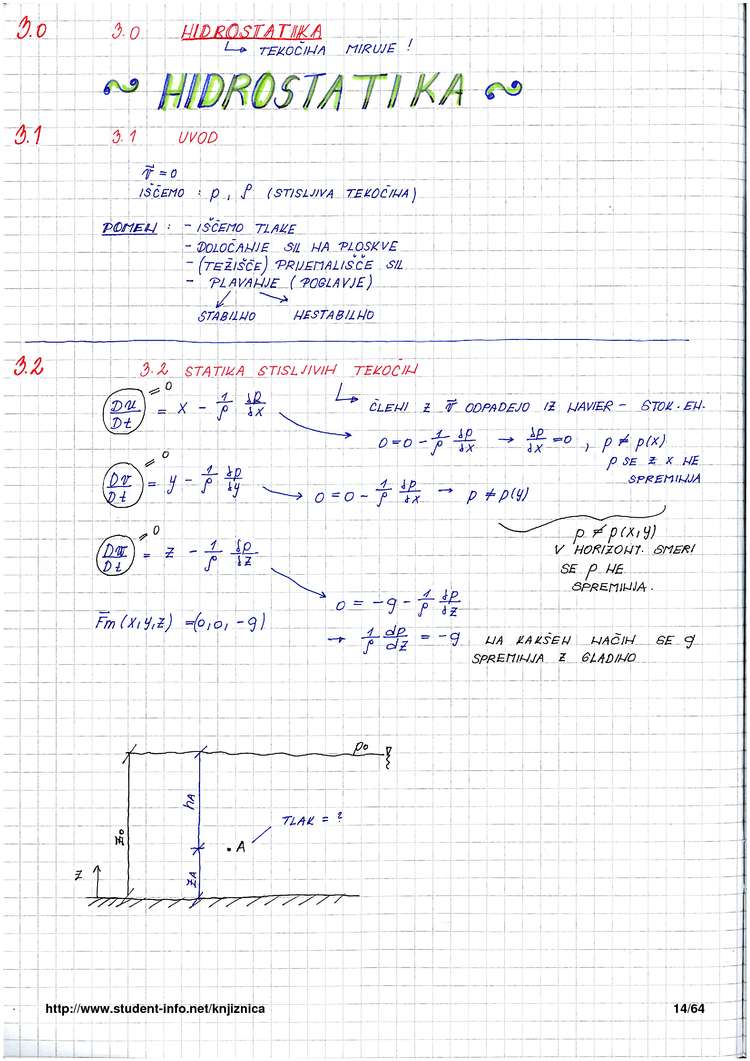 3.0 3.0 HIDROSTATIKA
↳ TEKOČINA MIRUJE !
~ HIDROSTATIKA ~
3.1 3.1 UVOD
v⃗ = 0
IŠČEMO : p, ρ (STISLJIVA TEKOČINA)
POMEN : - IŠČEMO TLAKE
- DOLOČANJE SIL NA PLOSKVE
- (TEŽIŠČE) PRIJEMALIŠČE SIL
- PLAVANJE (POGLAVJE)
STABILNO NESTABILNO
3.2 3.2 STATIKA STISLJIVIH TEKOČIN
↳ ČLENI Z v⃗ ODPADEJO IZ NAVIER - STOK. EN.
Du/Dt = 0 = X - 1/ρ ∂p/∂x
0 = 0 - 1/ρ ∂p/∂x → ∂p/∂x = 0 , p ≠ p(x)
p SE Z X NE
SPREMINJA
Dv/Dt = 0 = y - 1/ρ ∂p/∂y
0 = 0 - 1/ρ ∂p/∂x → p ≠ p(y)
p ≠ p(x,y)
V HORIZONT. SMERI
SE p NE
SPREMINJA.
Dw/Dt = 0 = z - 1/ρ ∂p/∂z
0 = -g - 1/ρ ∂p/∂z
F⃗m (x,y,z) = (0,0,-g)
→ 1/ρ dp/dz = -g NA KAKŠEN NAČIN SE g
SPREMINJA Z GLADINO
p0
hA
TLAK = ?
z0
A
z
zA
http://www.student-info.net/knjiznica 14/64